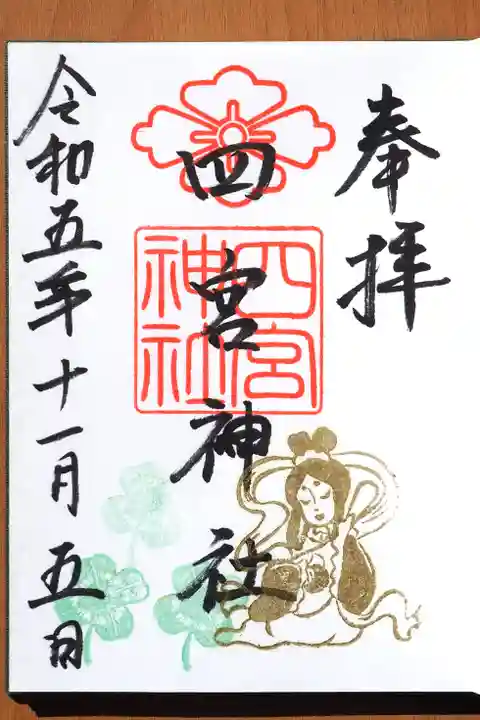 奉拝
四宮神社
四宮
神社
令和五年十一月五日